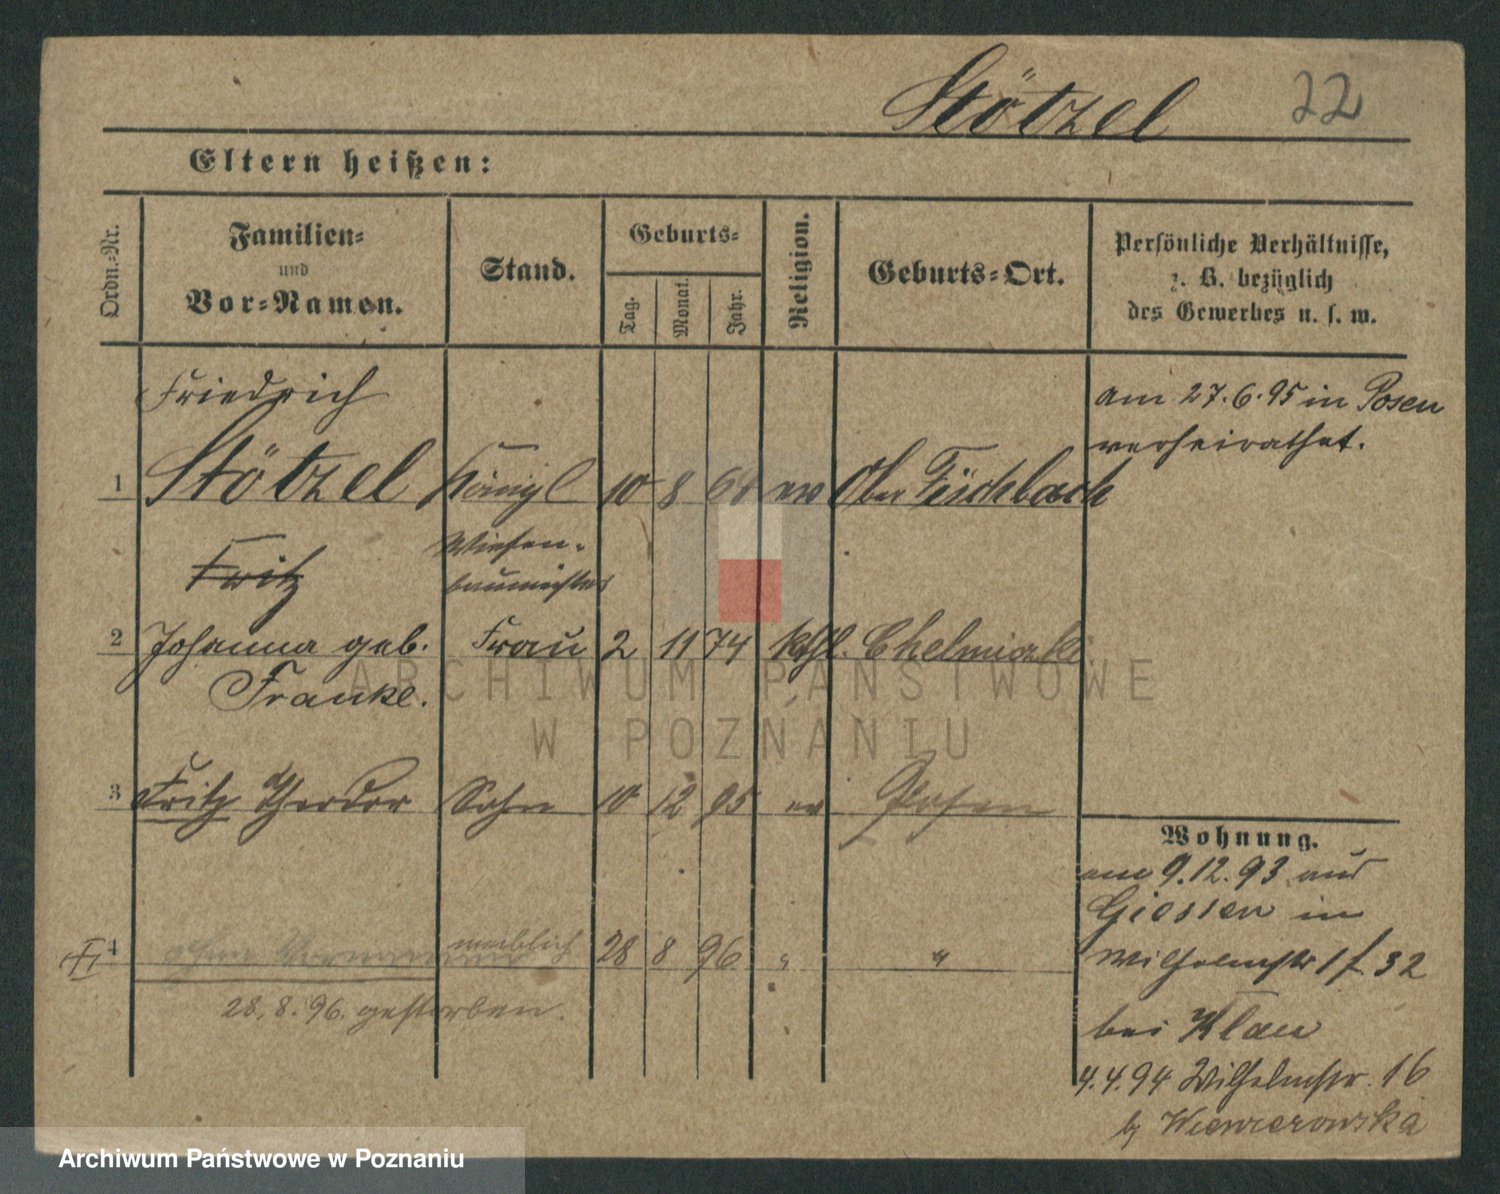 Stötzel 22
Eltern heißen:
Ordn.-Nr.
Familien-
und
Vor-Namen.
Stand.
Geburts-
Tag.
Monat.
Jahr.
Religion.
Geburts-Ort.
Persönliche Verhältnisse,
z. B. bezüglich
des Gewerbes u. s. w.
Friedrich
1 Stötzel Königl 10 8 64 ev Ober Fischbach
Wiesen-
baumeister
Fritz
am 27.6.95 in Posen
verheirathet.
2 Johanna geb. Frau 2 11 74 kthl. Chelmiczki
Franke.
3 Fritz Theodor Sohn 10 12 95 ev Posen
4 ohne Vornamen weiblich 28 8 96 " "
28.8.96. gestorben.
Wohnung.
am 9.12.93 aus
Giessen in
Wilhelmstr 1 f 32
bei Klau
4.4.94 Wilhelmstr. 16
by Wiewierowska
ARCHIWUM PAŃSTWOWE
W POZNANIU
Archiwum Państwowe w Poznaniu